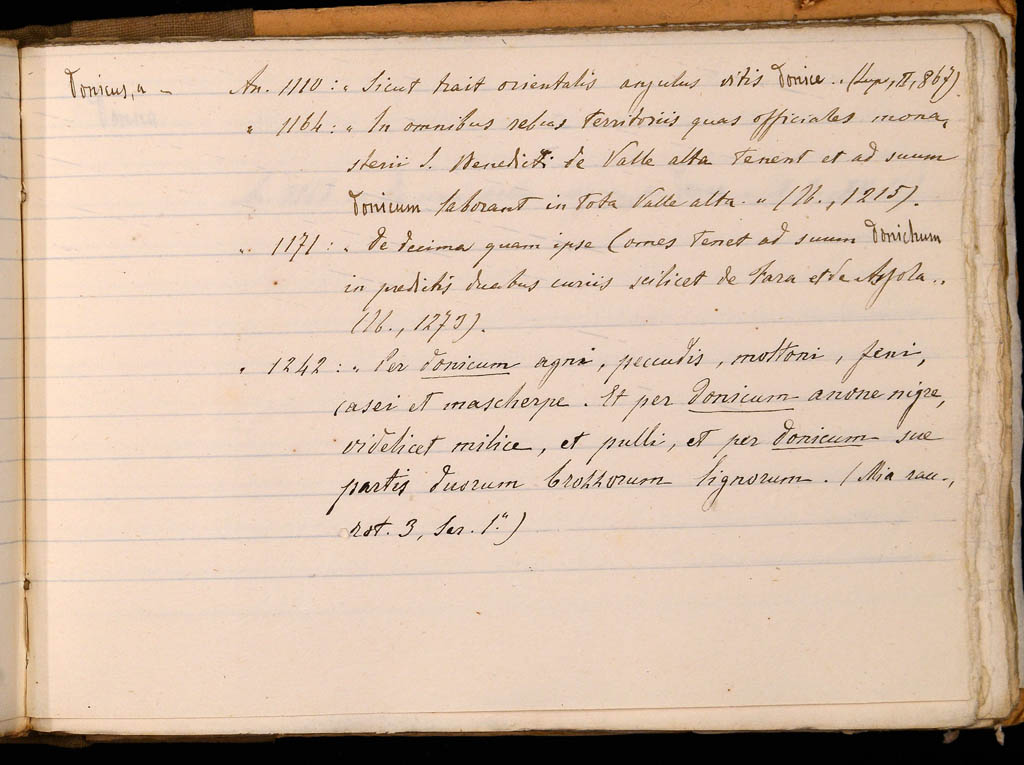 Donicus, a – An. 1110 : „ Sicut trait orientalis angulus vitis donice „ (Lup., II, 867).
„ 1164 : „ In omnibus rebus territoriis quas officiales mona-
sterii S. Benedicti de Valle alta tenent et ad suum
donicum laborant in tota Valle alta. „ (Ib., 1215).
„ 1171 : „ De decima quam ipse Comes tenet ad suum donichum
in predictis duabus curiis scilicet de Fara et de Azzola „
(Ib., 1273).
„ 1242 : „ Per donicum agni, pecudis, moltoni, feni,
casei et mascherpe. Et per donicum anone nigre,
videlicet milice, et pulli, et per donicum sue
partis duorum brozzorum lignorum. (Mia rac.,
rot. 3, Ser. 1.ª)